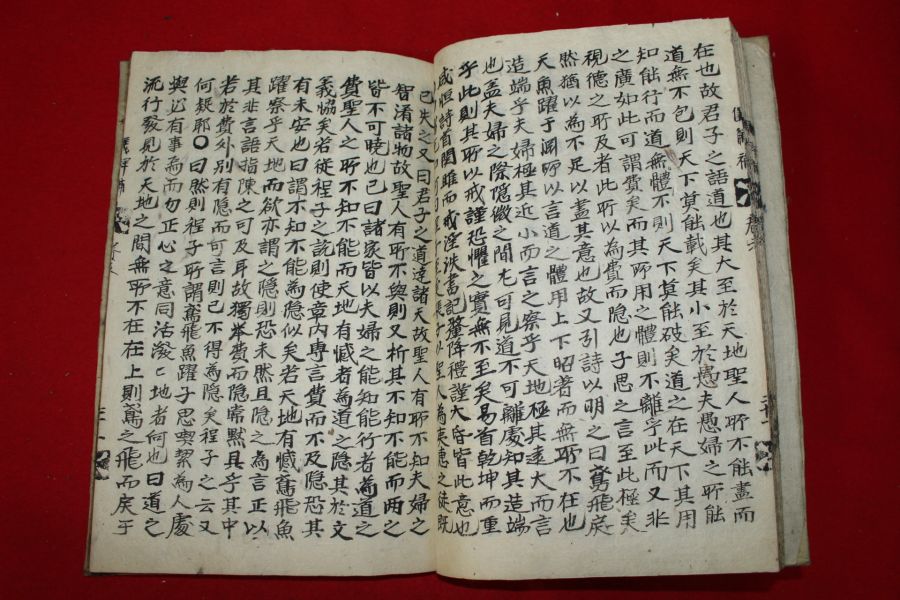 在也故君子之語道也其大至於天地聖人所不能盡而
道無不包則天下莫能載矣其小至於愚夫愚婦之所能
知能行而道無體不則天下莫能破矣道之在天下其用
之廣如此可謂費矣而其所用之體則不離乎此而又非
視德之所及者此所以為費而隱也子思之言至此極矣
然猶以為不足以盖其意也故又引詩以明之曰鳶飛戾
天魚躍于淵所以言道之體用上下昭著而無所不在也
造端乎夫婦極其近小而言之察乎天地極其遠大而言
也盖夫婦之際隱微之間尤可見道不可離處知其造端
乎此則其所以戒謹恐懼之實無不至矣易首乾坤而重
咸恒詩首関雎而戒淫泆書記釐降禮謹大昏皆此意也
張子以聖人為夷惠之徒既
已失之又曰君子之道達諸天故聖人有所不知夫婦之
智淆諸物故聖人有所不與則又析其不知不能而两之
皆不可曉也已曰諸家皆以夫婦之能知能行者為道之
費聖人之所不知不能而天地有憾者為道之隱其於文
義恊矣若從程子之說則使章內專言費而不及隱恐其
有未安也曰謂不知不能為隱似矣若天地有憾鳶飛魚
躍察乎天地而欲亦謂之隱則恐未然且隱之為言正以
其非言語指陳之可及耳故獨举費而隱常默具乎其中
若於費外別有隱而可言則已不得為隱矣程子之云又
何疑耶○曰然則程子所謂鳶飛魚躍子思喫緊為人處
與必有事焉而勿正心之意同活潑ミ地者何也曰道之
流行發見於天地之間無所不在在上則鳶之飛而戾于